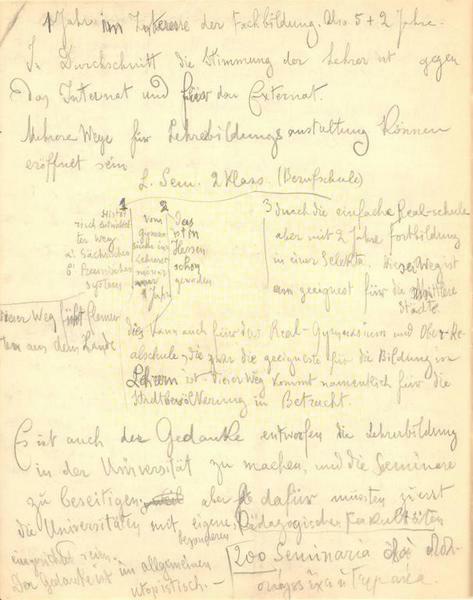 1 Jahr im Interesse der Fachbildung. Also 5 + 2 Jahre.
Im Durchschnitt die Stimmung der Lehrer ist gegen
das Internat und für das Externat.
Mehrere Wege für Lehrebildungsanstaltung können
eröffnet sein
L. Sem. 2 Klass. (Berufschule)
1
Histo
risch entwickel
ter Weg
a' Sächsisches
b' Preussisches
system
2
vom
gymna
sium ins
Lehrer
seminar
1 Jahr
das
ist in
Hessen
schon
geworden
3 durch die einfache Real-schule
aber mit 2 Jahre Fortbildung
in einer Selekta. Dieser Weg ist
am geeignest für die Mittlere
Städte
dieser Weg führt
aus dem Lande
die kann auch für das Real-Gymnasium und Ober-Re
alschule, die zwar die geeigneste für die Bildung von
Lehrern ist. dieser Weg kommt namentlich für die
Stadtbevölkerung in Betracht.
Es ist auch der Gedanke entworfen die Lehrerbildung
in der Universität zu machen, und die Seminare
zu beseitigen, aber dafür müssten zuerst
die Universitäten mit eigenen Pädagogischen Fakultäten
besonderen
eingerichtet sein.
Der Gedanke ist im allgemeinen
utopistisch. —
200 Seminaria